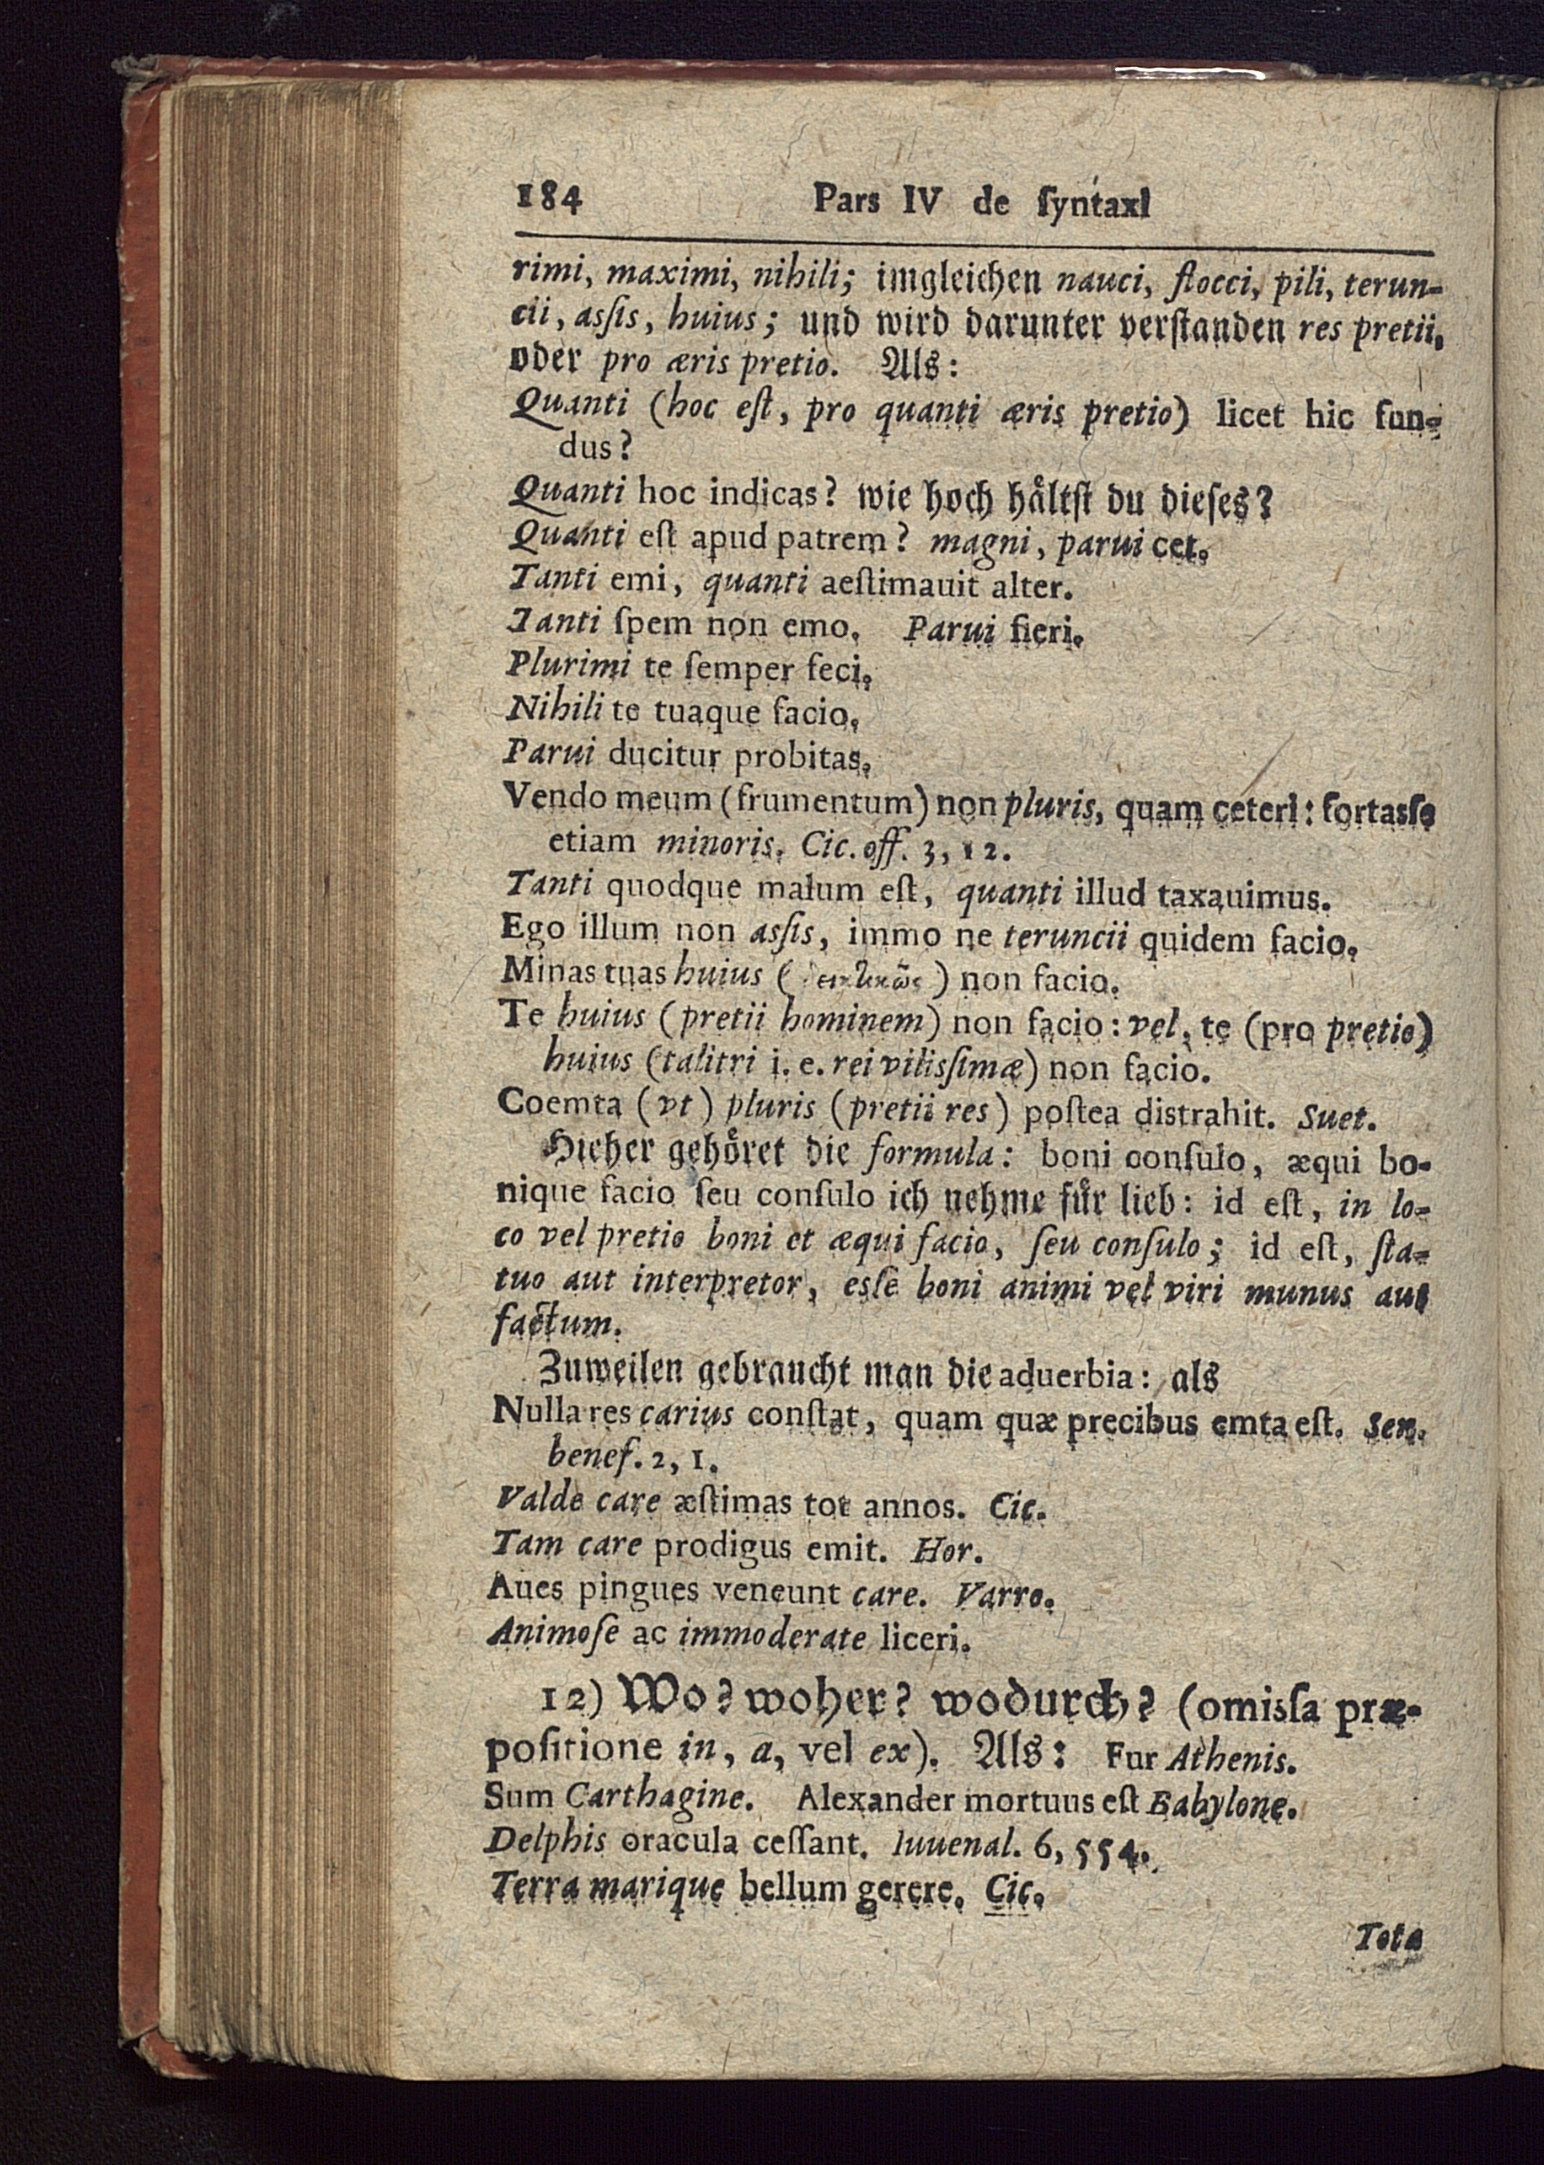 184 Pars IV de ſyntaxi
rimi, maximi, nihili; imgleichen nauci, flocci, pili, terun-
cii, asſis, huius; und wird darunter verſtanden res pretii,
oder pro æris pretio. Als:
Quanti (hoc eſt, pro quanti æris pretio) licet hic fun-
dus?
Quanti hoc indicas? wie hoch haͤltſt du dieſes?
Quanti eſt apud patrem? magni, parui cet.
Tanti emi, quanti aeſtimauit alter.
Tanti ſpem non emo. Parui fieri.
Plurimi te ſemper feci.
Nihili te tuaque facio.
Parui ducitur probitas.
Vendo meum (frumentum) non pluris, quam ceteri: fortasſe
etiam minoris. Cic. off. 3, 12.
Tanti quodque malum eſt, quanti illud taxauimus.
Ego illum non asſis, immo ne teruncii quidem facio.
Minas tuas huius ( ) non facio.
Te huius (pretii hominem) non facio: vel, te (pro pretio)
huius (talitri i. e. rei vilisſimæ) non facio.
Coemta (vt) pluris (pretii res) poſtea distrahit. Suet.
Hieher gehoͤret die formula: boni conſulo, æqui bo-
nique facio ſeu conſulo ich nehme fuͤr lieb: id eſt, in lo-
co vel pretio boni et æqui facio, ſeu conſulo; id eſt, ſta-
tuo aut interpretor, esſe boni animi vel viri munus aut
factum.
Zuweilen gebraucht man die aduerbia: als
Nulla res carius conſtat, quam quæ precibus emta eſt. Sen.
benef. 2, 1.
Valde care æſtimas tot annos. Cic.
Tam care prodigus emit. Hor.
Aues pingues veneunt care. Varro.
Animoſe ac immoderate liceri.
12) Wo? woher? wodurch? (omisſa præ-
poſitione in, a, vel ex). Als: Fur Athenis.
Sum Carthagine. Alexander mortuus eſt Babylone.
Delphis oracula ceſſant. Iuuenal. 6, 554.
Terra marique bellum gerere. Cic.
Tota